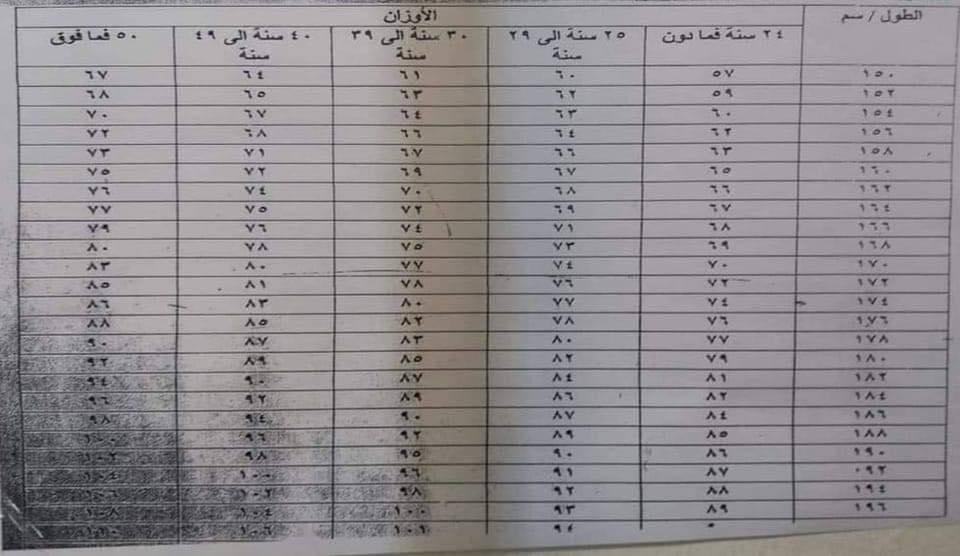 الطول / سم الأوزان
٢٤ سنة فما دون ٢٥ سنة الى ٢٩ سنة ٣٠ سنة الى ٣٩ سنة ٤٠ سنة الى ٤٩ سنة ٥٠ فما فوق
١٥٠ ٥٧ ٦٠ ٦١ ٦٤ ٦٧
١٥٢ ٥٩ ٦٢ ٦٣ ٦٥ ٦٨
١٥٤ ٦٠ ٦٣ ٦٤ ٦٧ ٧٠
١٥٦ ٦٢ ٦٤ ٦٦ ٦٨ ٧٢
١٥٨ ٦٣ ٦٦ ٦٧ ٧١ ٧٣
١٦٠ ٦٥ ٦٧ ٦٩ ٧٢ ٧٥
١٦٢ ٦٦ ٦٨ ٧٠ ٧٤ ٧٦
١٦٤ ٦٧ ٦٩ ٧٢ ٧٥ ٧٧
١٦٦ ٦٨ ٧١ ٧٤ ٧٦ ٧٩
١٦٨ ٦٩ ٧٣ ٧٥ ٧٨ ٨٠
١٧٠ ٧٠ ٧٤ ٧٧ ٨٠ ٨٣
١٧٢ ٧٢ ٧٦ ٧٨ ٨١ ٨٥
١٧٤ ٧٤ ٧٧ ٨٠ ٨٣ ٨٦
١٧٦ ٧٦ ٧٨ ٨٢ ٨٥ ٨٨
١٧٨ ٧٧ ٨٠ ٨٣ ٨٧ ٩٠
١٨٠ ٧٩ ٨٢ ٨٥ ٨٩ ٩٢
١٨٢ ٨١ ٨٤ ٨٧ ٩٠ ٩٤
١٨٤ ٨٢ ٨٦ ٨٩ ٩٢ ٩٦
١٨٦ ٨٤ ٨٧ ٩٠ ٩٤ ٩٨
١٨٨ ٨٥ ٨٩ ٩٢ ٩٦ ١٠٠
١٩٠ ٨٦ ٩٠ ٩٥ ٩٨ ١٠٢
٠٩٢ ٨٧ ٩١ ٩٦ ١٠٠ ١٠٤
١٩٤ ٨٨ ٩٢ ٩٨ ١٠٢ ١٠٦
١٩٦ ٨٩ ٩٣ ١٠٠ ١٠٤ ١٠٨
٩٤ ١٠١ ١٠٦ ١١٠